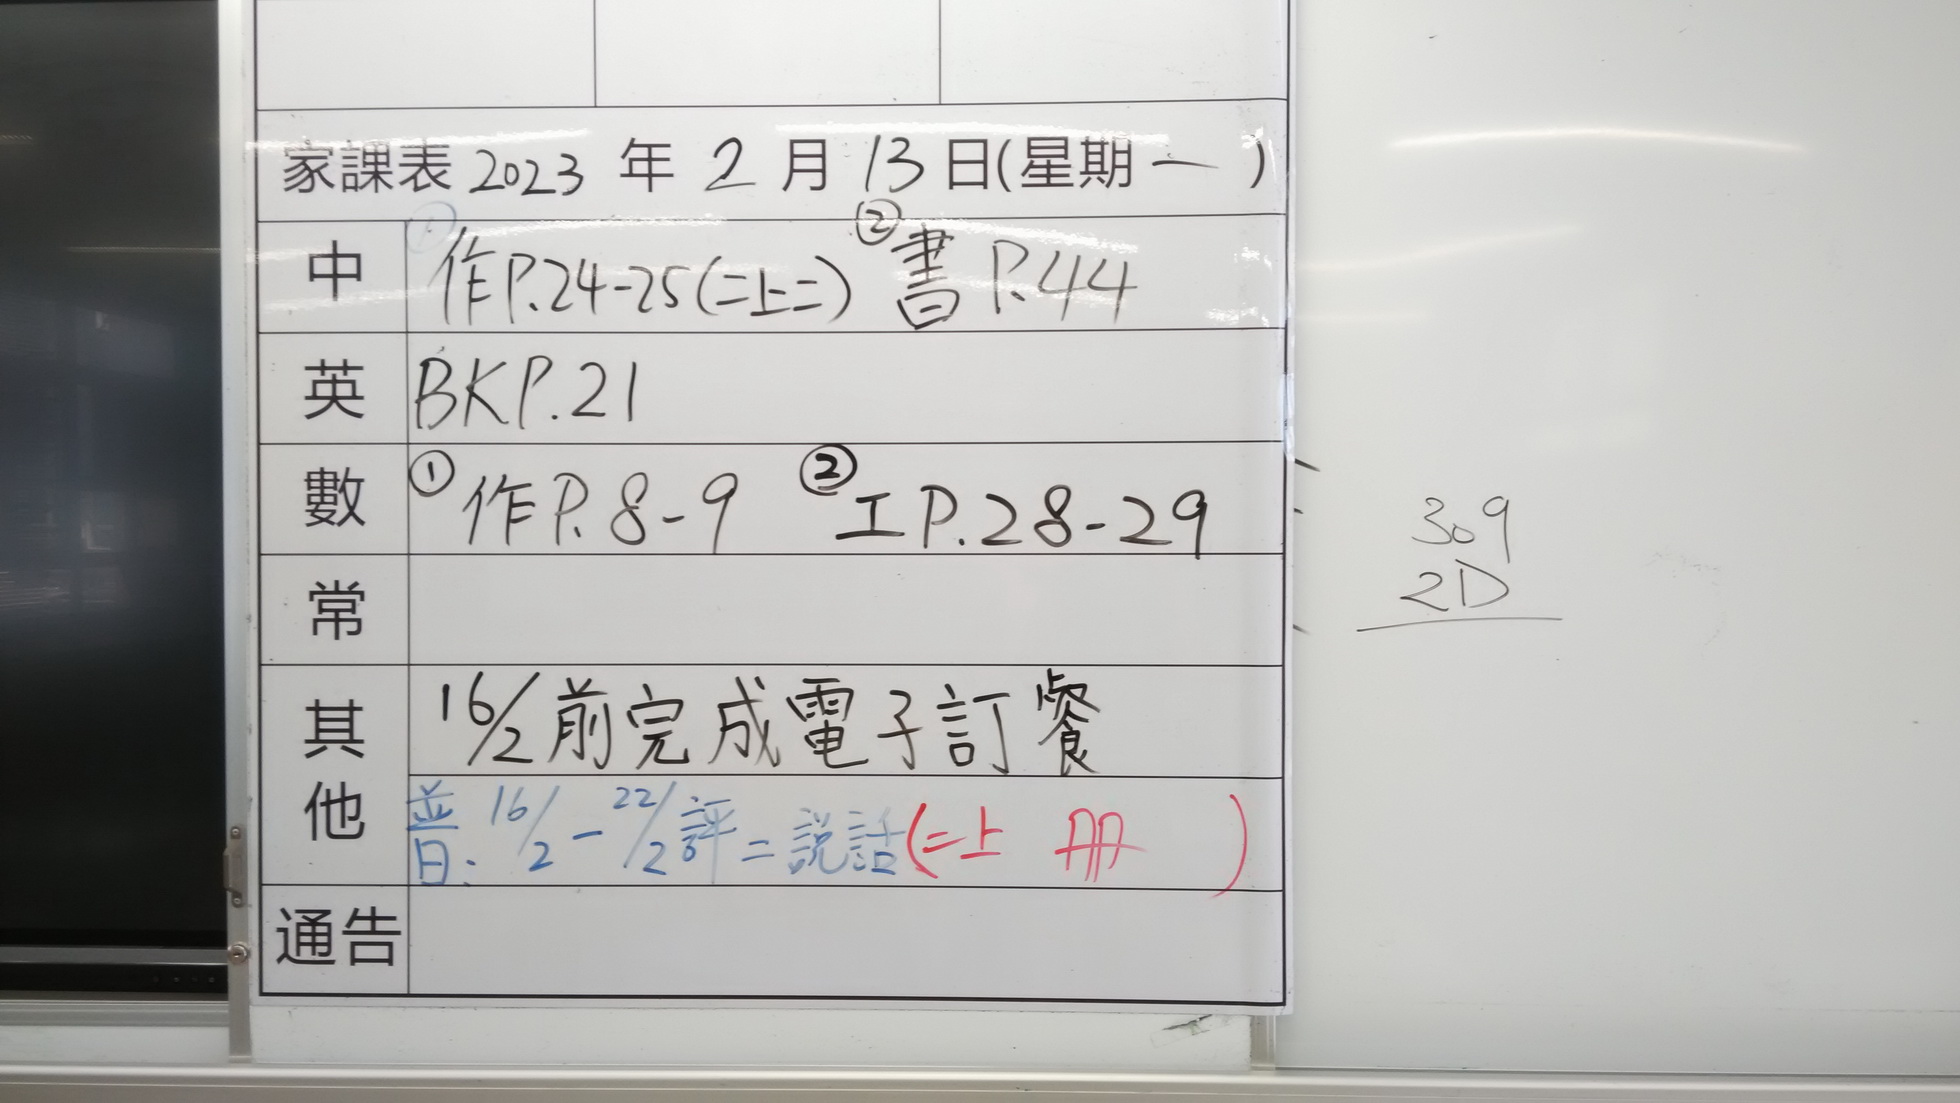 家課表 2023 年 2 月 13 日(星期一)
中 ①作P.24-25(二上二) ②書 P.44
英 BKP.21
數 ①作P.8-9 ②工P.28-29
常
其他 16/2前完成電子訂餐
普: 16/2-22/2評二說話(二上 冊)
通告
309
2D